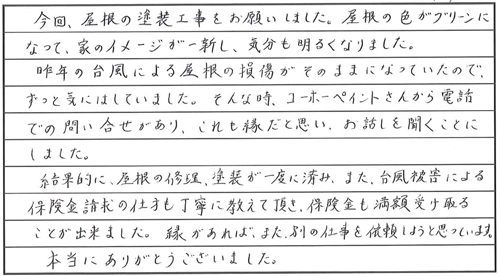 今回、屋根の塗装工事をお願いしました。屋根の色がグリーンに
なって、家のイメージが一新し、気分も明るくなりました。
昨年の台風による屋根の損傷がそのままになっていたので、
ずっと気にはしていました。そんな時、コーホーペイントさんから電話
での問い合せがあり、これも縁だと思い、お話しを聞くことに
しました。
結果的に、屋根の修理、塗装が一度に済み、また、台風被害による
保険金請求の仕方も丁寧に教えて頂き、保険金も満額受け取る
ことが出来ました。縁があれば、また、別の仕事を依頼しようと思っています。
本当にありがとうございました。